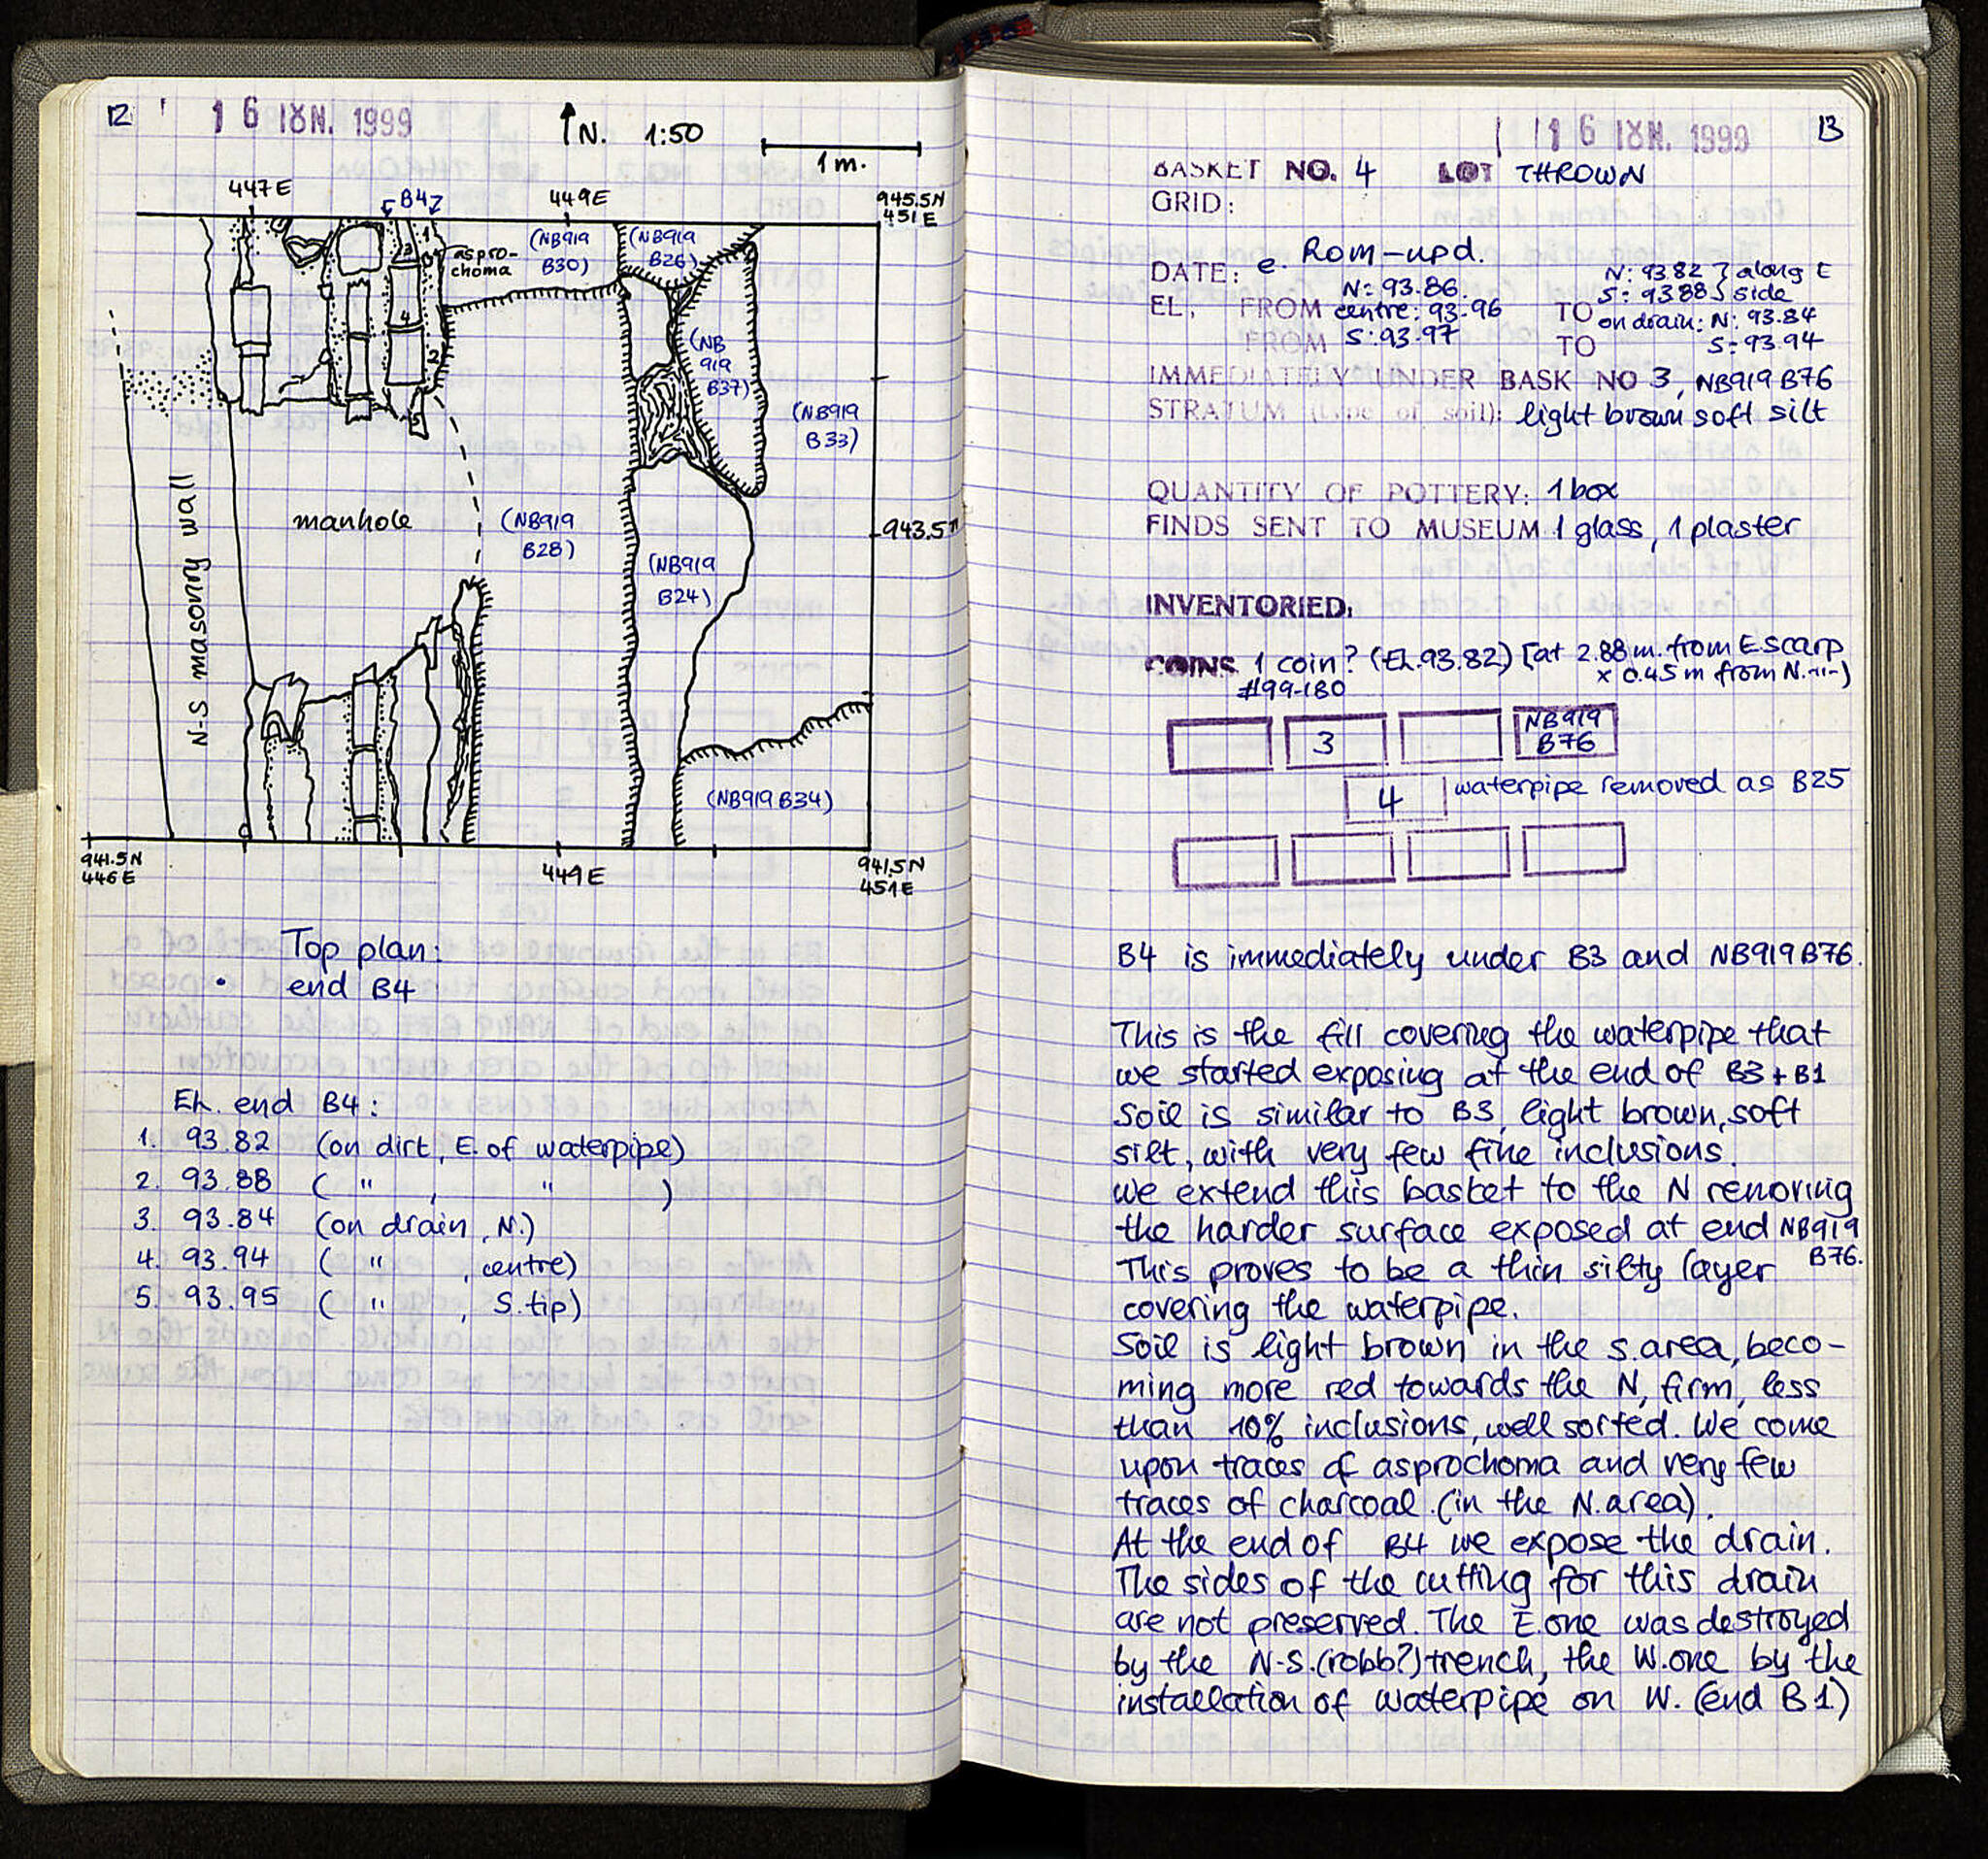 12
16 ΙΟΥΝ. 1999
N. 1:50
1m.
447E
B4
449E
945.5N
451E
aspro-
choma
(NB919
B30)
(NB919
B26)
(NB
919
B37)
(NB919
B33)
1
2
3
4
5
N-S masonry wall
manhole
(NB919
B28)
943.5N
(NB919
B24)
(NB919 B34)
941.5N
446E
449E
941.5N
451E
Top plan:
end B4
EL. end B4:
1. 93.82 (on dirt, E. of waterpipe)
2. 93.88 ( " , " )
3. 93.84 (on drain, N.)
4. 93.94 ( " , centre)
5. 93.95 ( " , S. tip)
16 ΙΟΥΝ. 1999
13
BASKET NO. 4 LOT THROWN
GRID:
DATE: e. Rom-upd.
N: 93.86
EL. FROM centre: 93.96
FROM S: 93.97
N: 93.82 } along E
S: 93.88 } side
TO on drain: N: 93.84
TO S: 93.94
IMMEDIATELY UNDER BASK NO 3, NB919 B76
STRATUM (type of soil): light brown soft silt
QUANTITY OF POTTERY: 1 box
FINDS SENT TO MUSEUM 1 glass, 1 plaster
INVENTORIED:
COINS 1 coin? (EL. 93.82) [at 2.88 m. from E scarp
#99-180 x 0.45 m from N. -11-)
3
NB919
B76
4 waterpipe removed as B25
B4 is immediately under B3 and NB919 B76.
This is the fill covering the waterpipe that
we started exposing at the end of B3 + B1
Soil is similar to B3, light brown, soft
silt, with very few fine inclusions.
We extend this basket to the N removing
the harder surface exposed at end NB919
B76.
This proves to be a thin silty layer
covering the waterpipe.
Soil is light brown in the S. area, beco-
ming more red towards the N, firm, less
than 10% inclusions, well sorted. We come
upon traces of asprochoma and very few
traces of charcoal (in the N. area).
At the end of B4 we expose the drain.
The sides of the cutting for this drain
are not preserved. The E. one was destroyed
by the N-S. (robb?) trench, the W. one by the
installation of waterpipe on W. (end B1)